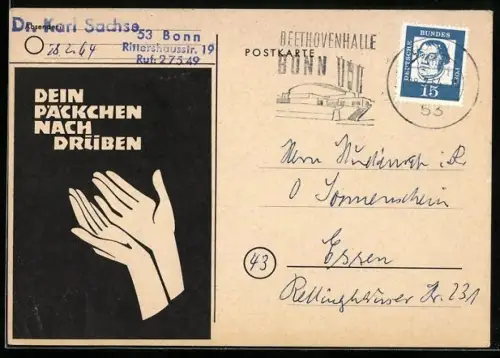 Absender:
Dr. Karl Sachse
53 Bonn
Rittershausstr. 19
Ruf: 27549
28.2.64
DEIN
PÄCKCHEN
NACH
DRÜBEN
POSTKARTE
BEETHOVENHALLE
BONN
DEUTSCHE BUNDESPOST
15
53
Herrn
O Sonnenschein
(43)
Essen
Rellinghauser Str. 231